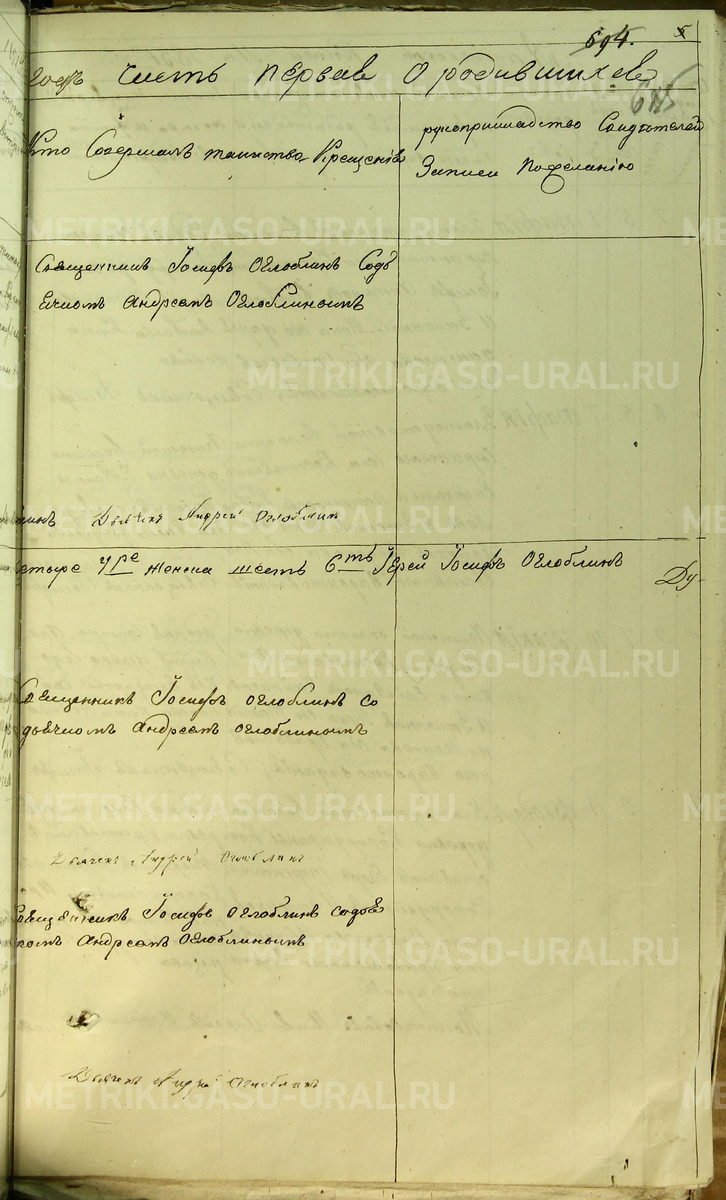 694. 5
годъ часть первая о родившихся
Кто Совершалъ таинство Крещенія
рукоприкладство Свидетелей
Записи по желанію
Священникъ Іосифъ Оглоблинъ Содъ
ячкомъ Андреемъ Оглоблинымъ
Дьячекъ Андрей Оглоблин
етыре 4ре женска шесть 6ть Іерей Іосифъ Оглоблинъ
Ду-
Священникъ Іосифъ Оглоблинъ со
дьячкомъ Андреемъ Оглоблинымъ
Дьячекъ Андрей Оглоблин
Священникъ Іосифъ Оглоблинъ
Андреемъ Оглоблинымъ
Дьячекъ Андрей Оглоблин
METRIKI.GASO-URAL.RU